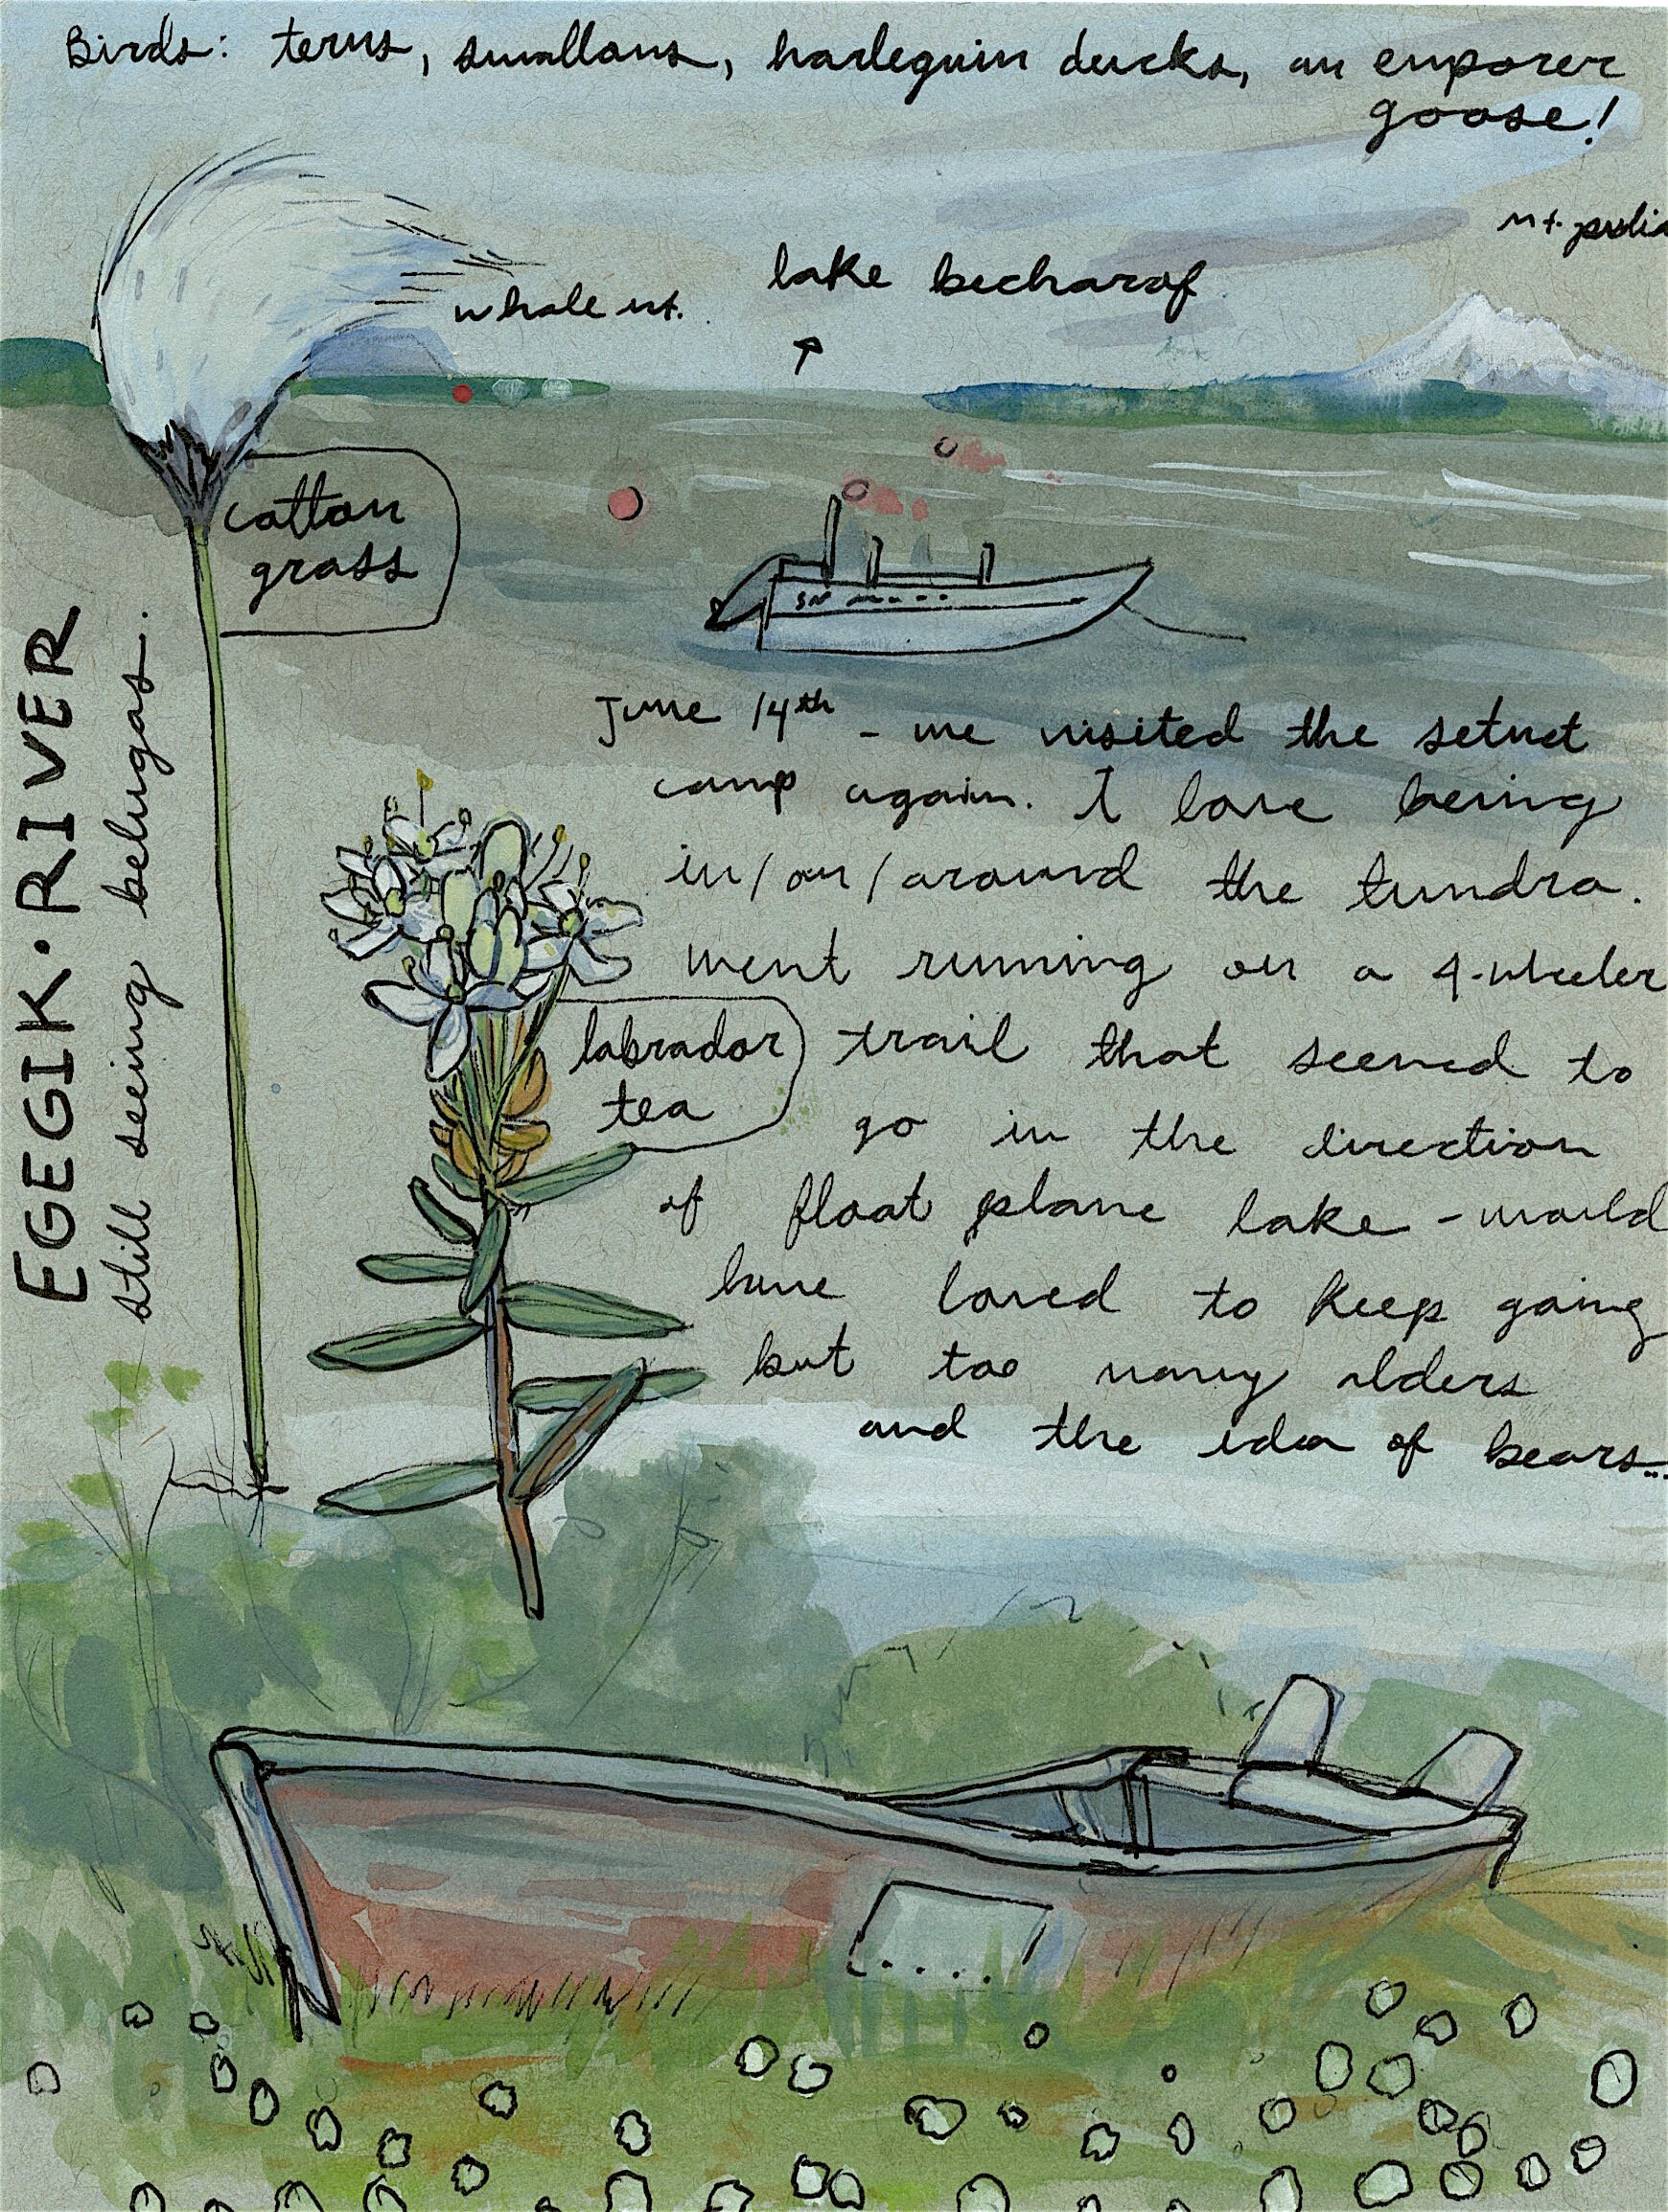 Birds: terns, swallows, harlequin ducks, an emporer
goose!
Mt. peulia
lake becharof
whale mt.
cotton
grass
EGEGIK·RIVER
still seeing belugas.
June 14th - we visited the setnet
camp again. I love being
in/on/around the tundra.
went running on a 4-wheeler
trail that seemed to
go in the direction
of float plane lake - would
have loved to keep going
but too many alders
and the idea of bears...
labrador
tea